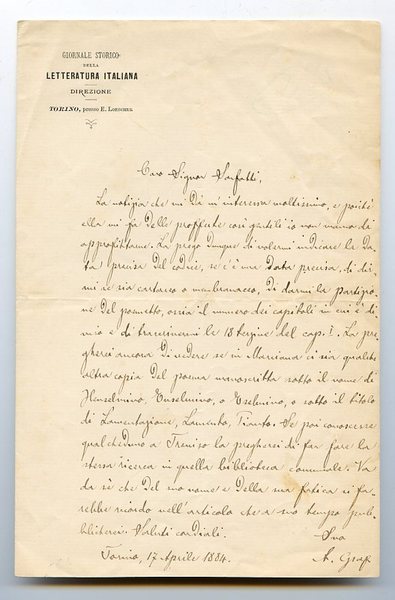 GIORNALE STORICO
DELLA
LETTERATURA ITALIANA
DIREZIONE
TORINO, presso E. Loescher
Caro Signor Sarfatti,
La notizia che mi dà m'interessa moltissimo, e poiché
ella mi fa delle profferte così gentili io non manco di
approfittarne. La prego dunque di volermi indicare la da
ta precisa del codice, se c'è una data precisa, di dir
mi se sia cartaceo o membranaceo, di darmi la partizio
ne del poemetto, ossia il numero dei capitoli in cui è di
viso e di trascrivermi le 18 terzine del cap. I. La pre
gherei ancora di vedere se in Marciana ci sia qualche
altra copia del poema manoscritta sotto il nome di
Henselmino, Enselmino, o Eselmino, o sotto il titolo
di Lamentazione, Lamento, Pianto. Se poi conoscesse
qualcheduno a Treviso la pregherei di far fare la
stessa ricerca in quella biblioteca comunale. Va
da sè che del suo nome e della sua fatica si fa-
rebbe ricordo nell'articolo che a suo tempo pub-
blicherei. Saluti cordiali.
Suo
Torino, 17 Aprile 1884.
A. Graf